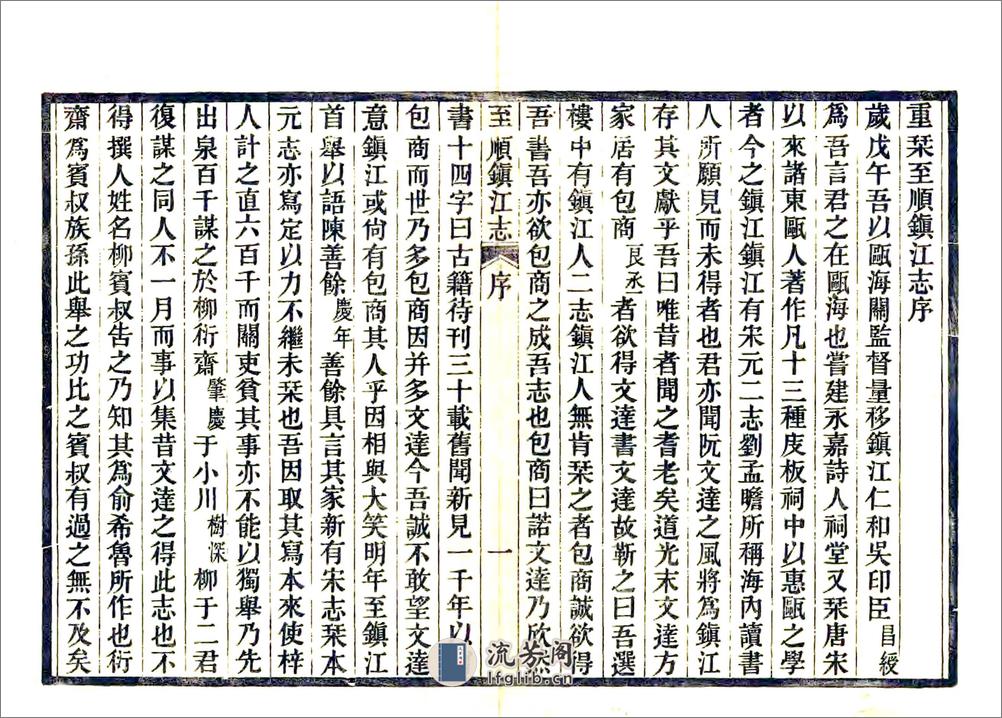 重栞至順鎭江志序
歲戊午吾以甌海關監督量移鎭江仁和吳印臣昌綬
爲吾言君之在甌海也嘗建永嘉詩人祠堂又栞唐宋
以來諸東甌人著作凡十三種庋板祠中以惠甌之學
者今之鎭江鎭江有宋元二志劉孟瞻所稱海內讀書
人所願見而未得者也君亦聞阮文達之風將爲鎭江
存其文獻乎吾曰唯昔者聞之耆老矣道光末文達方
家居有包商良丞者欲得文達書文達故靳之曰吾選
樓中有鎭江人二志鎭江人無肯栞之者包商誠欲得
吾書吾亦欲包商之成吾志也包商曰諾文達乃欣然
至順鎭江志 序 一
書十四字曰古籍待刊三十載舊聞新見一千年以
包商而世乃多包商因并多文達今吾誠不敢望文達
意鎭江或尙有包商其人乎因相與大笑明年至鎭江
首舉以語陳善餘慶年善餘具言其家新有宋志栞本
元志亦寫定以力不繼未栞也吾因取其寫本來使梓
人計之直六百千而關吏貧其事亦不能以獨舉乃先
出泉百千謀之於柳衍齋肇慶于小川樹深柳于二君
復謀之同人不一月而事以集昔文達之得此志也不
得撰人姓名柳賓叔告之乃知其爲俞希魯所作也衍
齋爲賓叔族孫此舉之功比之賓叔有過之無不及矣
流芳阁
lfglib.cn